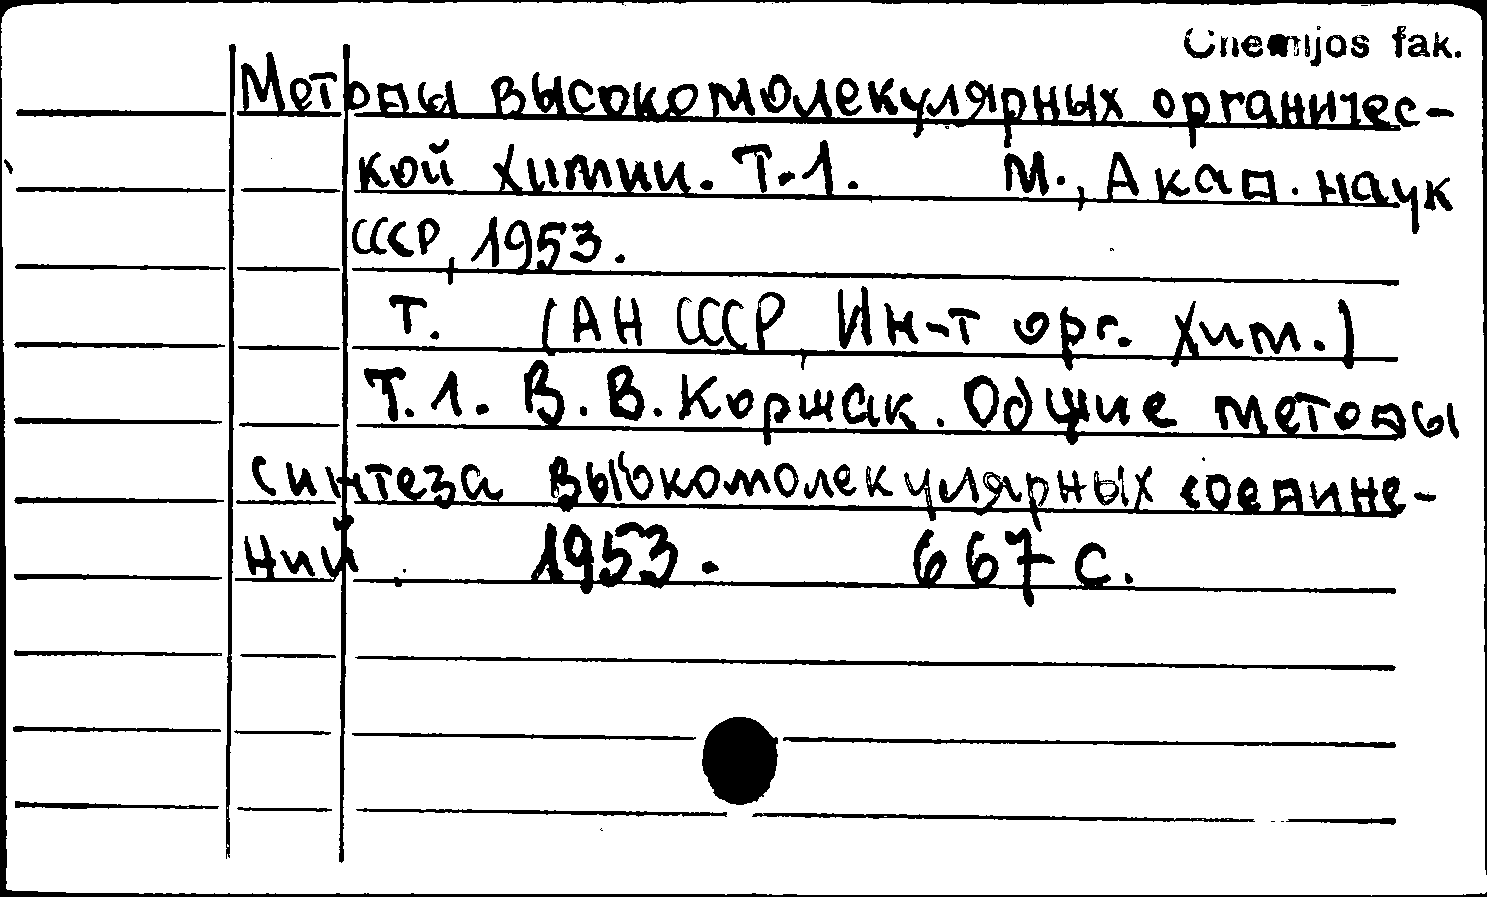 Chemijos fak.
Методы высокомолекулярных органичес-
кой химии. Т.1. М., Акад. наук
СССР, 1953.
т. (АН СССР, Ин-т орг. хим.)
Т.1. В.В. Коршак. Общие методы
синтеза высокомолекулярных соедине-
ний. 1953. 667 с.